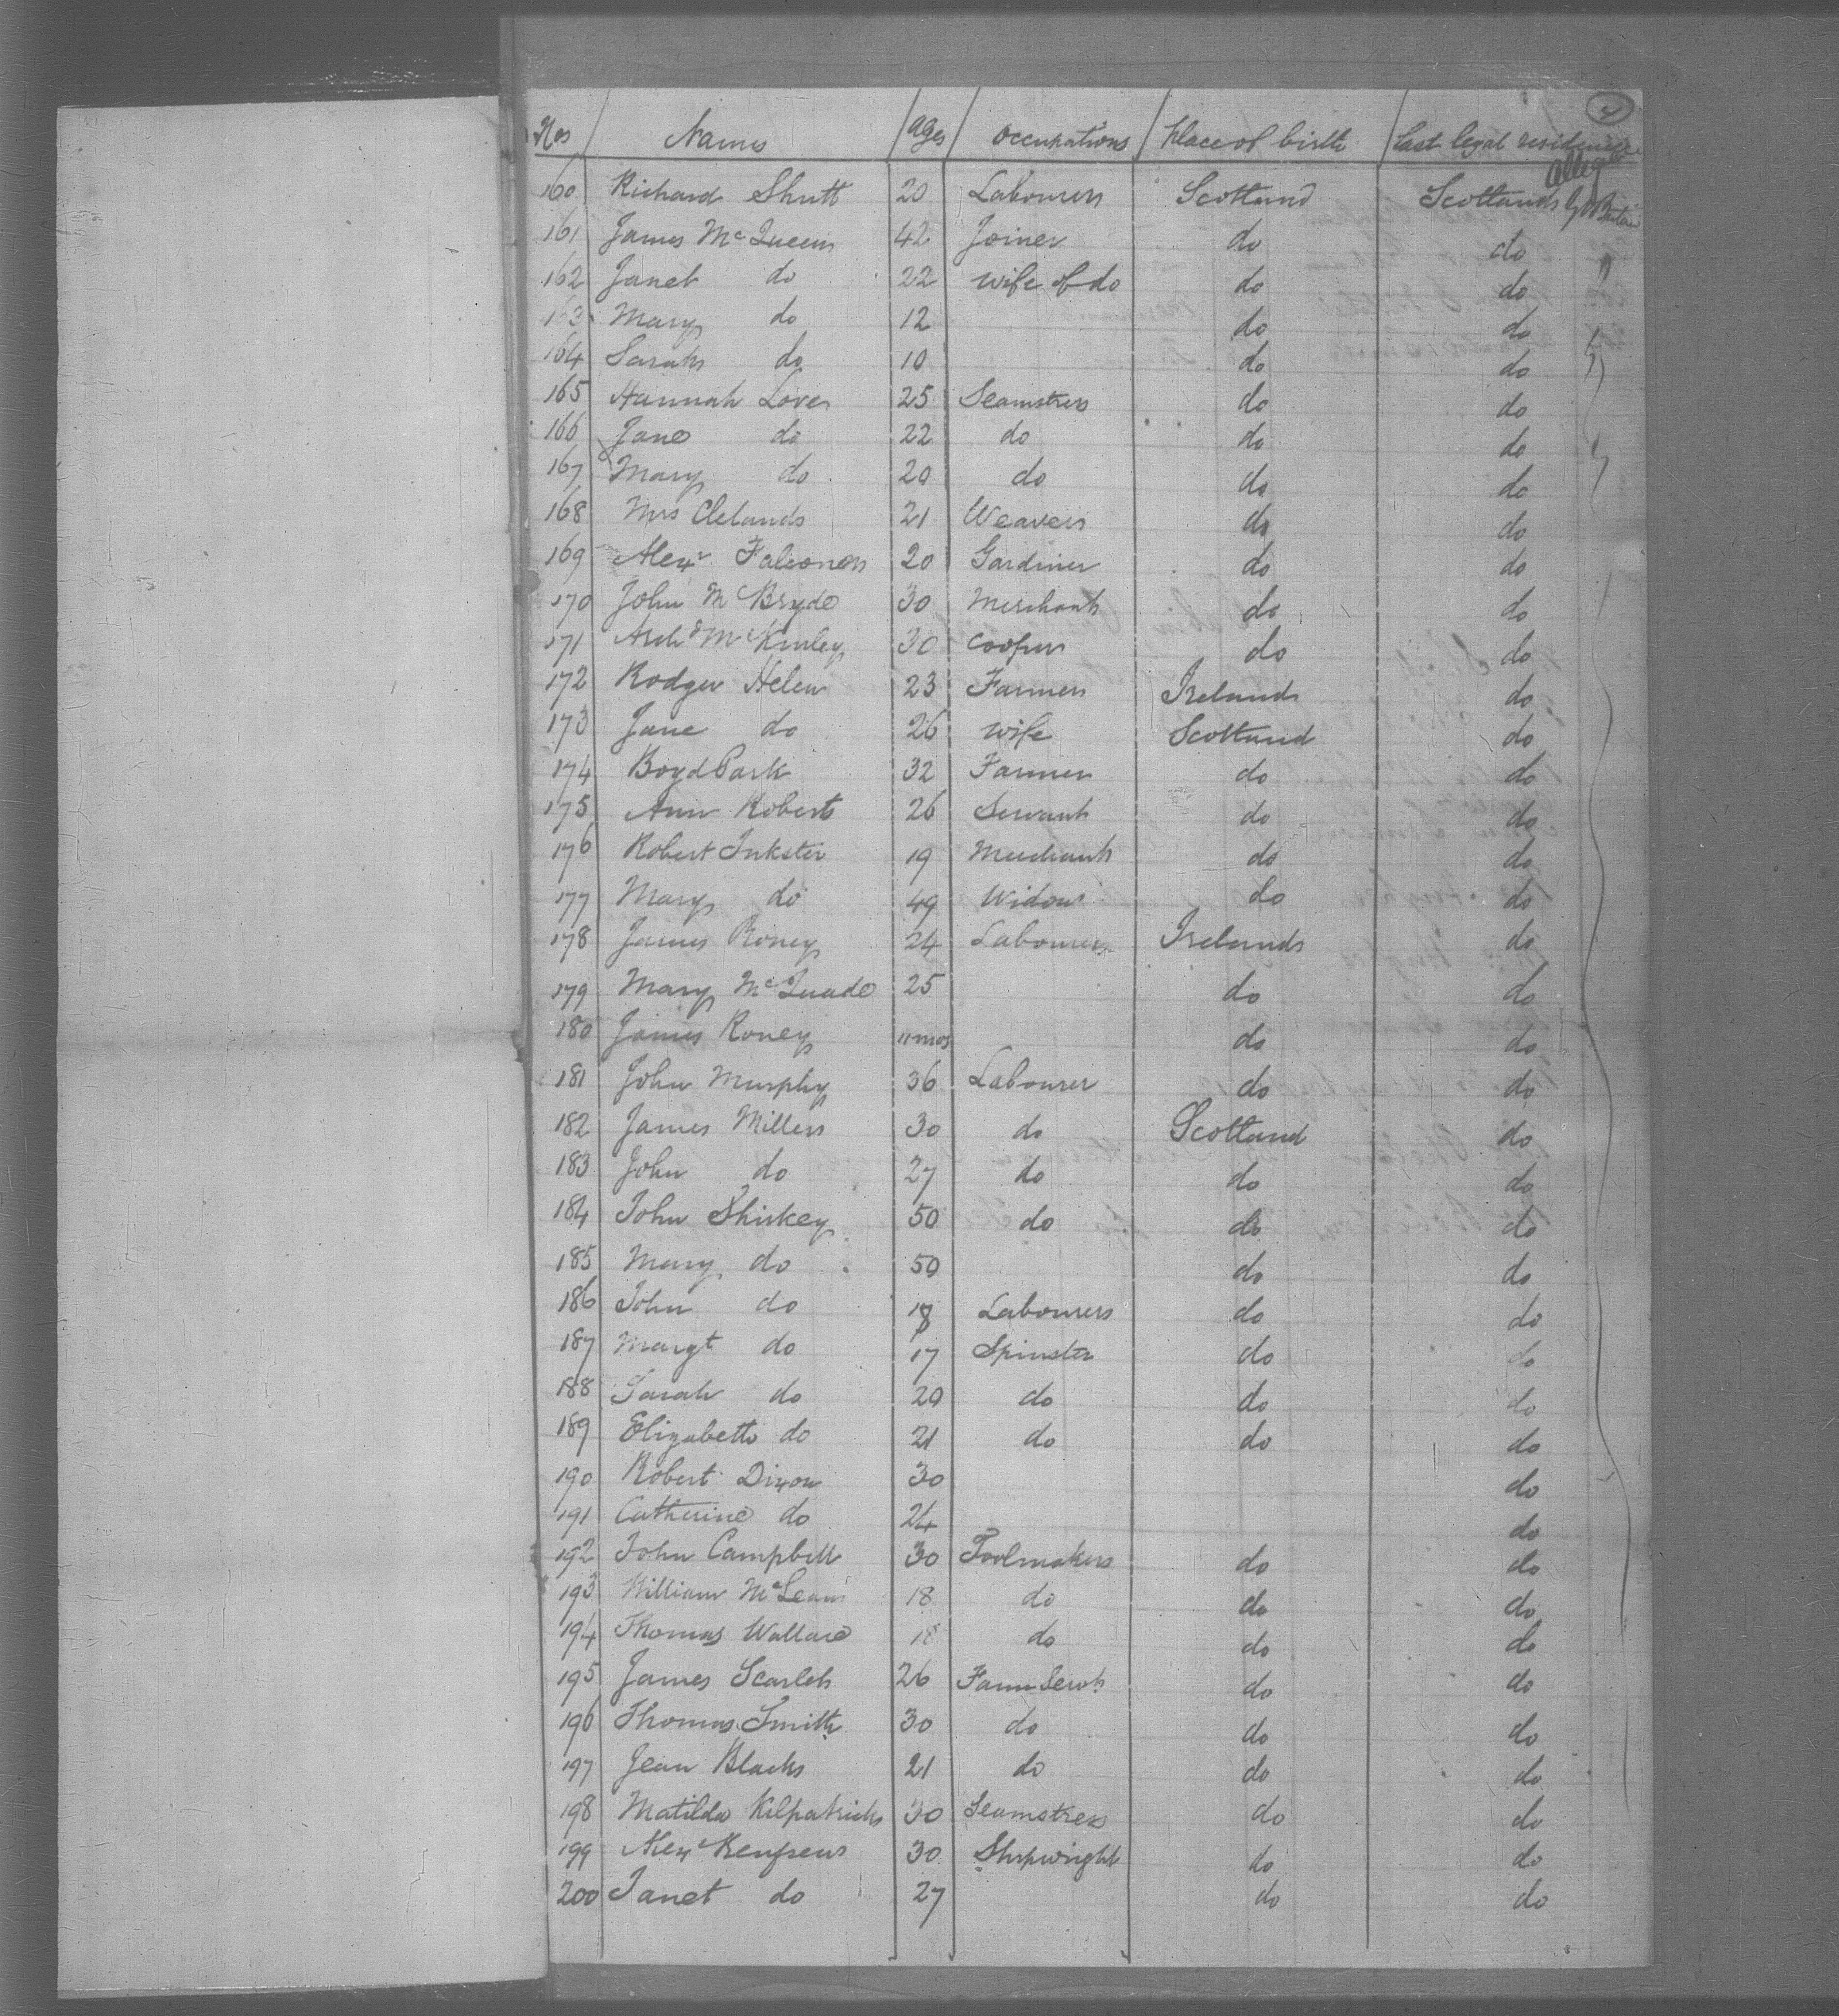 Nos Names Ages Occupations Place of birth Last legal residence
160 Richard Shutt 20 Labourer Scotland Scotland
161 James McQueen 42 Joiner do do
162 Janet do 22 wife of do do do
163 Mary do 12 do do
164 Sarah do 10 do do
165 Hannah Love 25 Seamstress do do
166 Jane do 22 do do do
167 Mary do 20 do do do
168 Mrs Clelands 21 Weaver do do
169 Alexr Falconer 20 Gardiner do do
170 John M Bryde 30 Merchant do do
171 Archd McKinley 30 Cooper do do
172 Rodger Helen 23 Farmer Ireland do
173 Jane do 26 wife Scotland do
174 Boyd Park 32 Farmer do do
175 Ann Robert 26 Servant do do
176 Robert Inkster 19 Merchant do do
177 Mary do 49 Widow do do
178 James Roney 24 Labourer Ireland do
179 Mary McQuade 25 do do
180 James Roney 11 mos do do
181 John Murphy 36 Labourer do do
182 James Miller 30 do Scotland do
183 John do 27 do do do
184 John Shirkey 50 do do do
185 Mary do 50 do do
186 John do 18 Labourer do do
187 Margt do 17 Spinster do do
188 Sarah do 20 do do do
189 Elizabeth do 21 do do do
190 Robert Dixon 30 do
191 Catherine do 24 do
192 John Campbell 30 Toolmaker do do
193 William McLean 18 do do do
194 Thomas Wallace 18 do do do
195 James Scarlet 26 Farm Servt do do
196 Thomas Smith 30 do do do
197 Jean Black 21 do do do
198 Matilda Kilpatrick 30 Seamstress do do
199 Alexr Renfrew 30 Shipwright do do
200 Janet do 27 do do